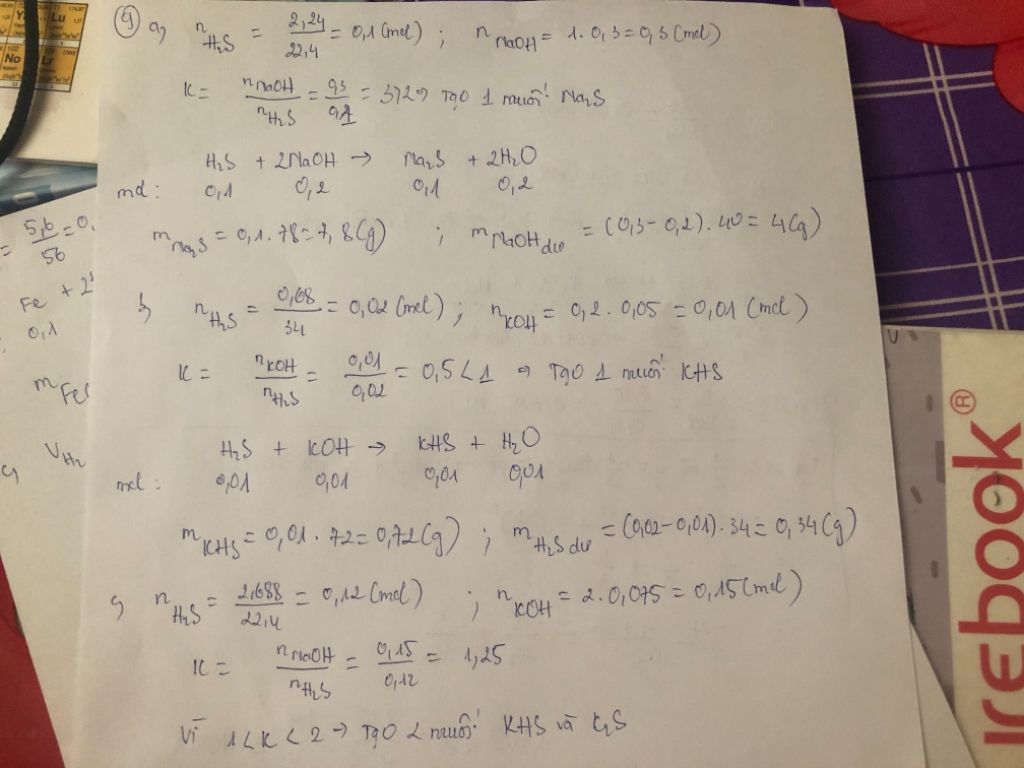 ⑨ a, n H₂S = 2,24/22,4 = 0,1 (mol) ; n NaOH = 1 . 0,3 = 0,3 (mol)
K = nNaOH/nH₂S = 0,3/0,1 = 3 > 2 => Tạo 1 muối Na₂S
H₂S + 2NaOH → Na₂S + 2H₂O
mol: 0,1 0,2 0,1 0,2
m Na₂S = 0,1 . 78 = 7,8 (g) ; m NaOH dư = (0,3 - 0,2) . 40 = 4 (g)
b, n H₂S = 0,68/34 = 0,02 (mol) ; n KOH = 0,2 . 0,05 = 0,01 (mol)
K = nKOH/nH₂S = 0,01/0,02 = 0,5 < 1 => Tạo 1 muối KHS
H₂S + KOH → KHS + H₂O
mol: 0,01 0,01 0,01 0,01
m KHS = 0,01 . 72 = 0,72 (g) ; m H₂S dư = (0,02 - 0,01) . 34 = 0,34 (g)
c, n H₂S = 2,688/22,4 = 0,12 (mol) ; n KOH = 2 . 0,075 = 0,15 (mol)
K = nNaOH/nH₂S = 0,15/0,12 = 1,25
Vì 1 < K < 2 → Tạo 2 muối KHS và K₂S
= 5,6/56 = 0,
Fe + 2
0,1
m FeS
V H₂
No Lr
Lu
IREBOOK®